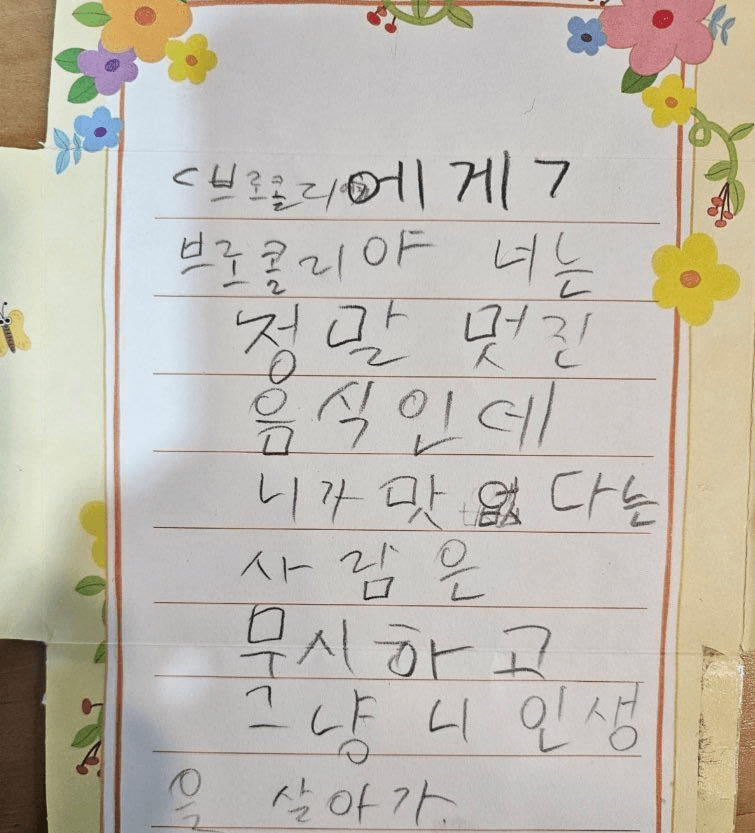 <브로콜리에게7
브로콜리야 너는
정말 멋진
음식인데
니가 맛 없다는
사람은
무시하고
그냥 니 인생
을 살아가.